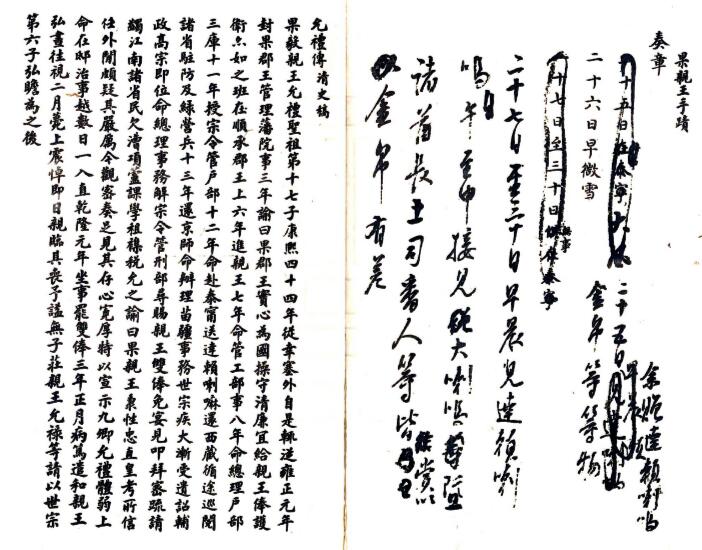 果親王手蹟
奏章
余賜達賴喇嗎
二十五日
金帛等等物
二十六日早微雪
十七日至三十日 俱住泰寧
無事
二十七日至三十日早晨見達賴喇
嗎午至申接見 大喇嘛
諸酋長土司番人等皆 賞以
金帛有差
允禮傳清史稿
果毅親王允禮聖祖第十七子康熙四十四年從幸塞外自是輒從雍正元年
封果郡王管理藩院事三年諭曰果郡王實心為國操守清廉宜給親王俸護
衛亦如之班在順承郡王上六年進親王七年命管工部事八年命總理戶部
三庫十一年授宗令管戶部十二年命赴泰甯送達賴喇嘛還西藏循途巡閱
諸省駐防及綠營兵十三年還京師命辦理苗疆事務世宗疾大漸受遺詔輔
政高宗即位命總理事務解宗令管刑部尋賜親王雙俸免宴見叩拜審疏請
蠲江南諸省民欠漕項蘆課學租襍稅允之諭曰果親王秉性忠直皇考所信
任外間頗疑其嚴厲今觀審奏足見其存心寬厚特以宣示九卿允禮體弱上
命在邸治事越數日一入直乾隆元年坐事罷雙俸三年正月病篤遣和親王
弘晝往視二月薨上震悼即日親臨其喪予謚無子莊親王允祿等請以世宗
第六子弘瞻為之後